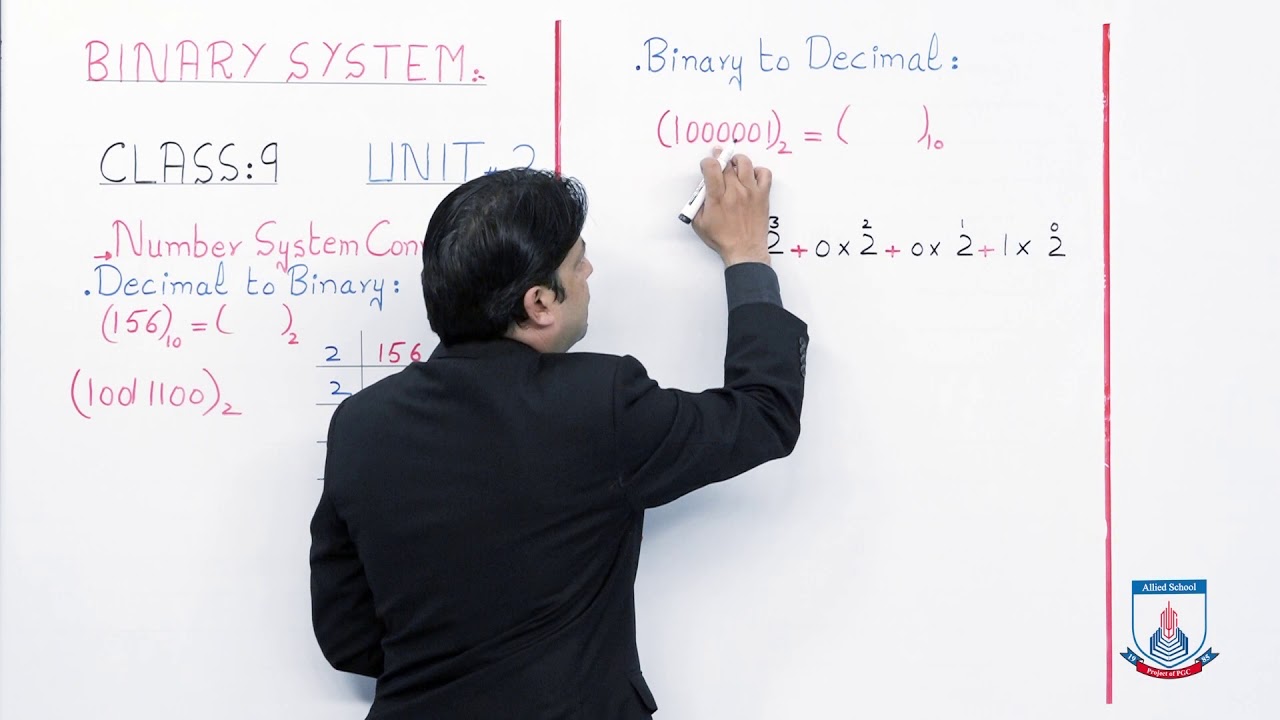 BINARY SYSTEM:-
CLASS:9 UNIT#2
→Number System
.Decimal to Binary:
(156)10 = ( )2
2 156
2
(10011100)2
.Binary to Decimal:
(1000001)2 = ( )10
2^3 + 0 x 2^2 + 0 x 2^1 + 1 x 2^0
Allied School
19 85
Project of PGC